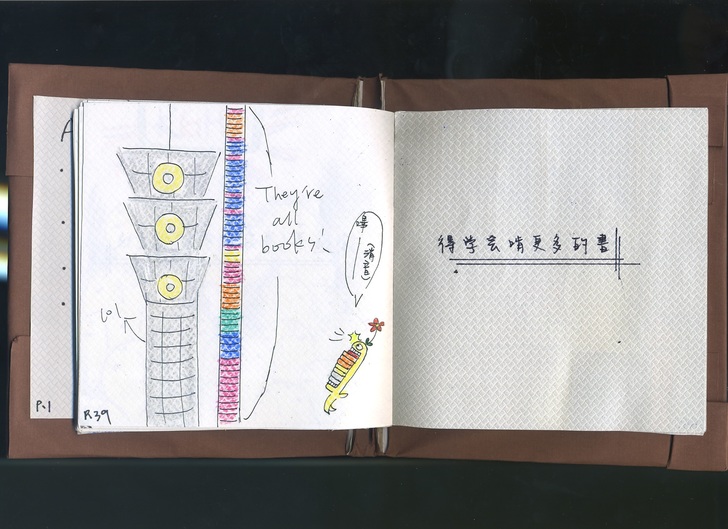 They're
all
books!
101
(消音)
P.39
P.1
A
得学会啃更多的書